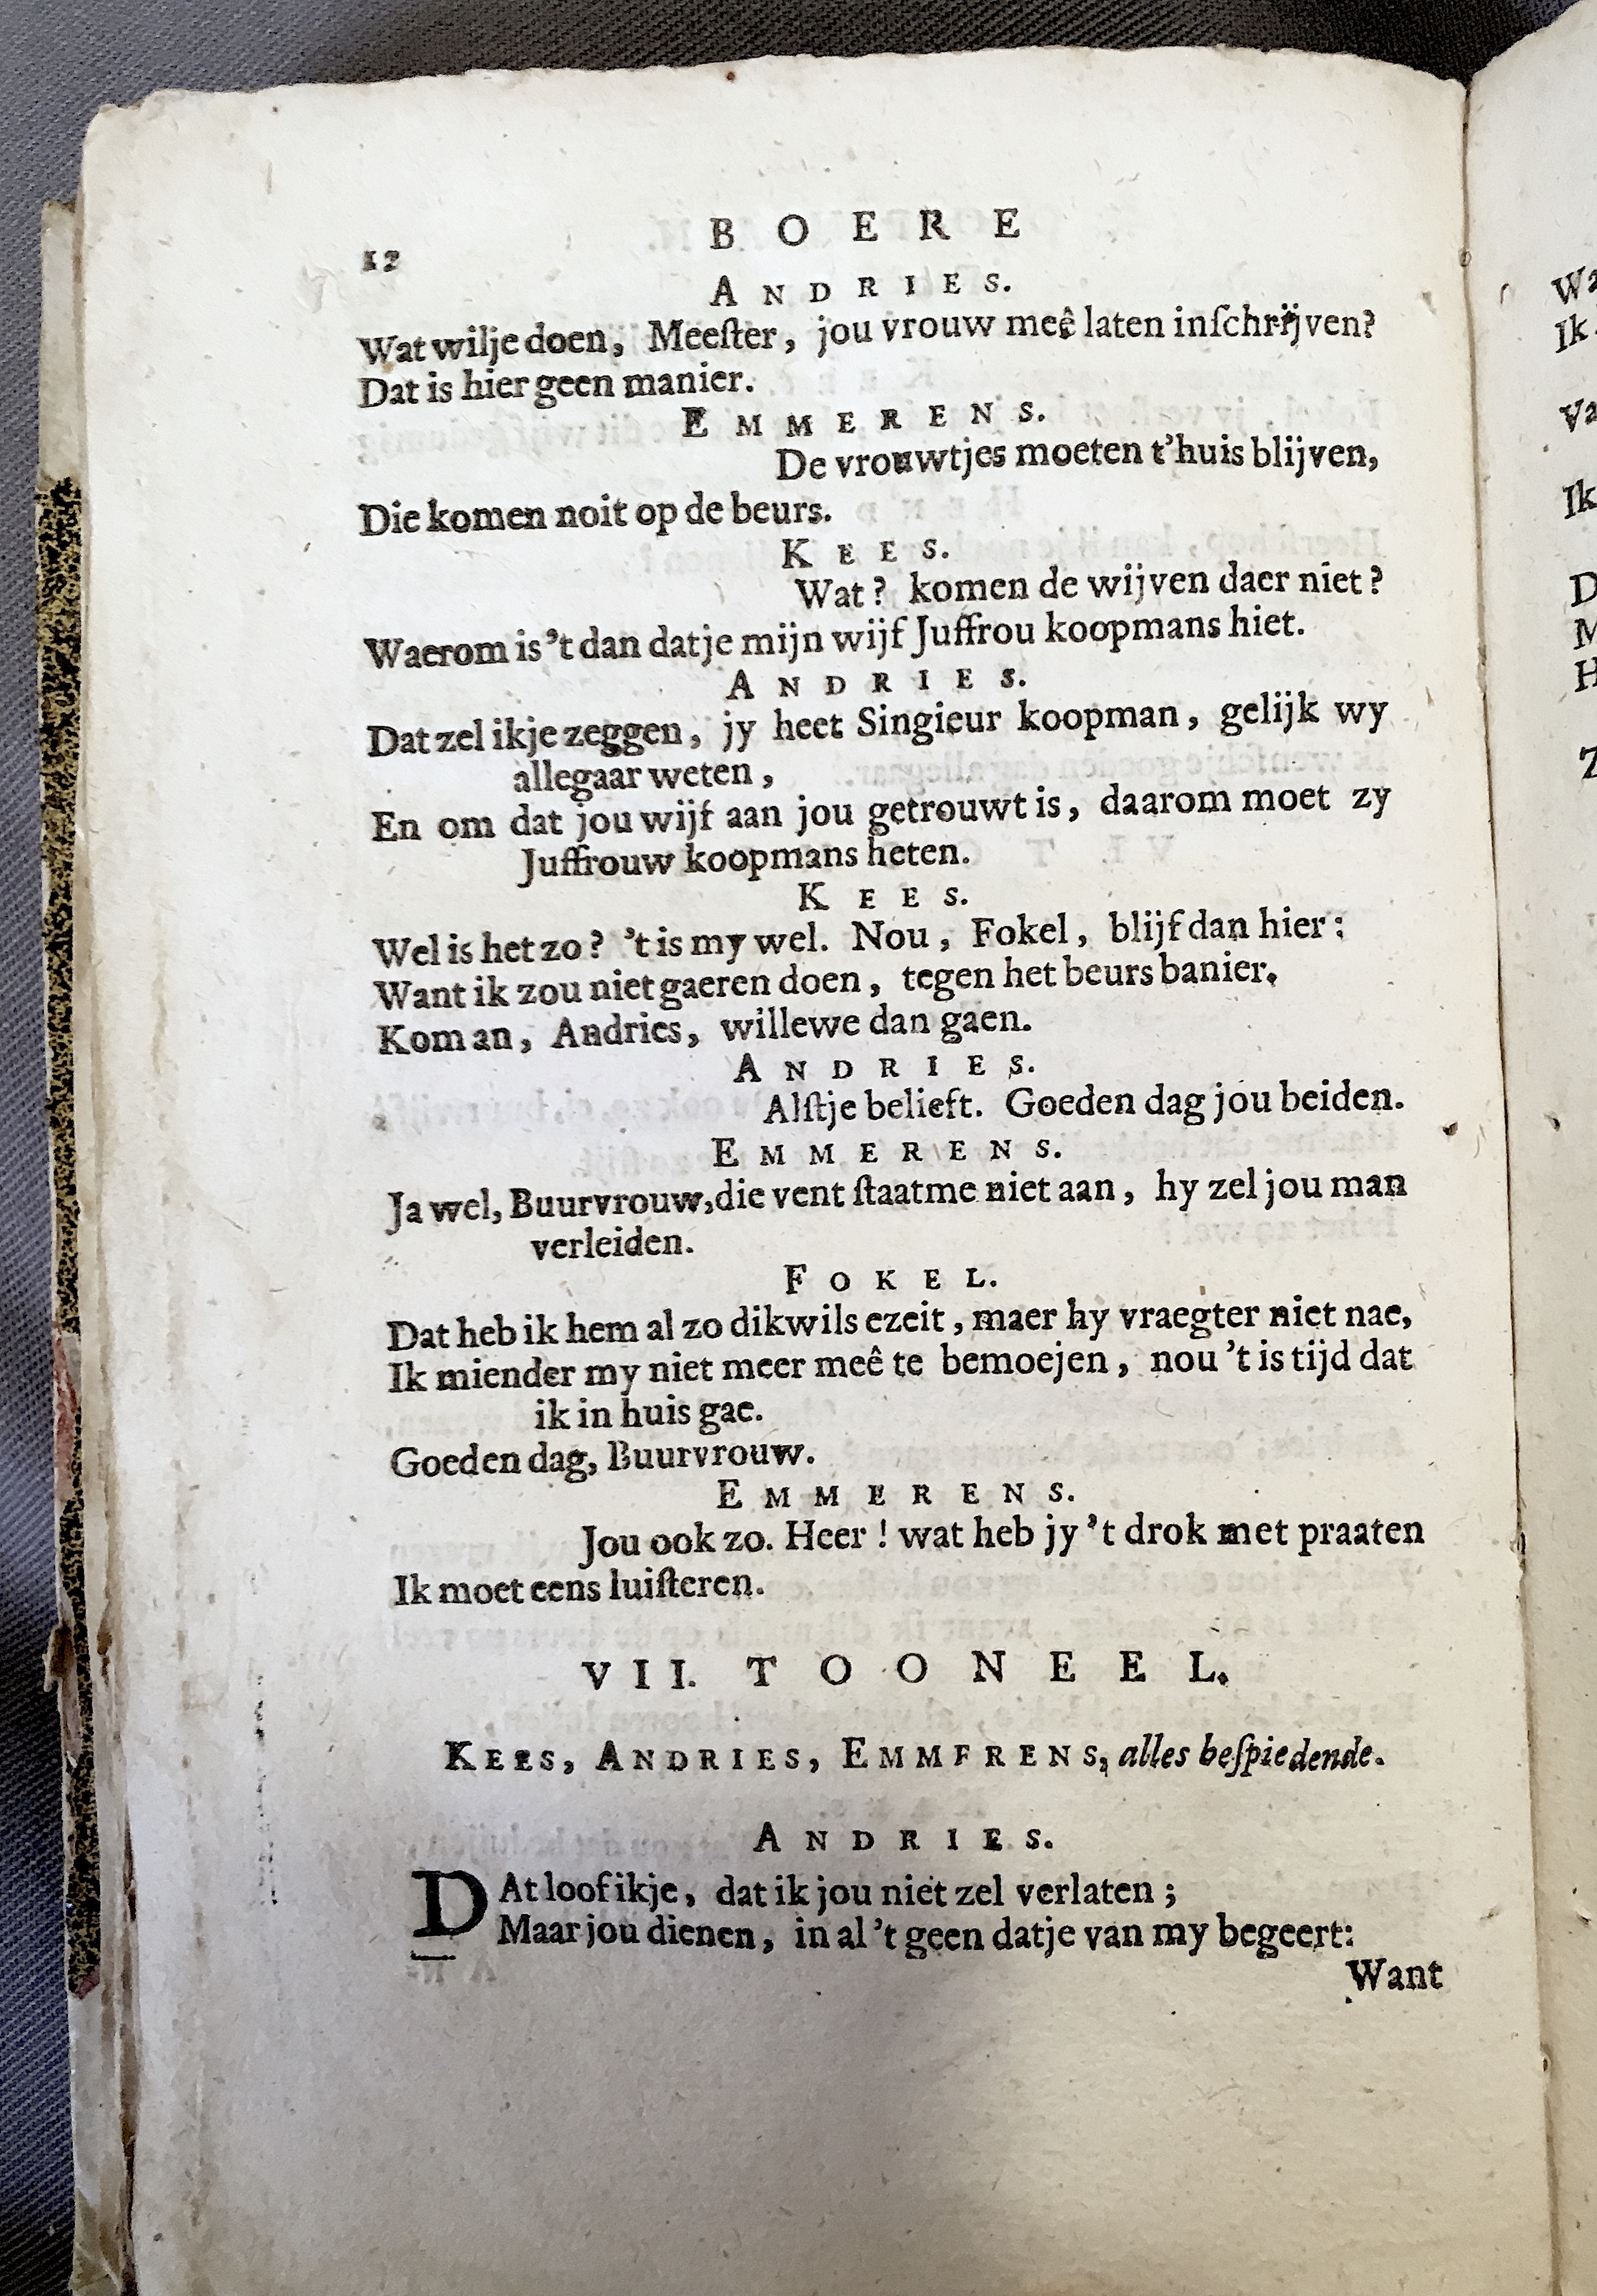 12 BOERE
ANDRIES.
Wat wilje doen, Meeſter, jou vrouw meê laten inſchrijven?
Dat is hier geen manier.
EMMERENS.
De vrouwtjes moeten t'huis blijven,
Die komen noit op de beurs.
KEES.
Wat? komen de wijven daer niet?
Waerom is 't dan datje mijn wijf Juffrou koopmans hiet.
ANDRIES.
Dat zel ikje zeggen, jy heet Singieur koopman, gelijk wy
allegaar weten,
En om dat jou wijf aan jou getrouwt is, daarom moet zy
Juffrouw koopmans heten.
KEES.
Wel is het zo? 't is my wel. Nou, Fokel, blijf dan hier:
Want ik zou niet gaeren doen, tegen het beurs banier.
Kom an, Andries, willewe dan gaen.
ANDRIES.
Alſtje belieft. Goeden dag jou beiden.
EMMERENS.
Ja wel, Buurvrouw, die vent ſtaatme niet aan, hy zel jou man
verleiden.
FOKEL.
Dat heb ik hem al zo dikwils ezeit, maer hy vraegter niet nae,
Ik miender my niet meer meê te bemoejen, nou 't is tijd dat
ik in huis gae.
Goeden dag, Buurvrouw.
EMMERENS.
Jou ook zo. Heer! wat heb jy 't drok met praaten
Ik moet eens luiſteren.
VII. TOONEEL.
KEES, ANDRIES, EMMFRENS, alles beſpiedende.
ANDRIES.
DAt loof ikje, dat ik jou niet zel verlaten;
Maar jou dienen, in al 't geen datje van my begeert:
Want
Wa
Ik
Va
Ik
D
M
H
Z